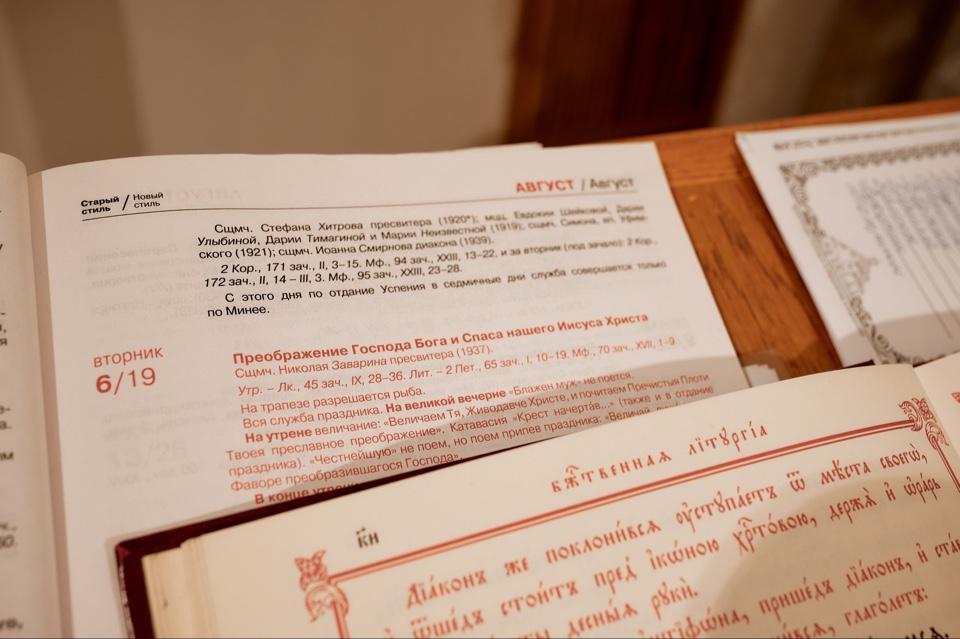 Старый стиль / Новый стиль
АВГУСТ / Август
Сщмч. Стефана Хитрова пресвитера (1920*); мцц. Евдокии Шейковой, Дарии
Улыбиной, Дарии Тимагиной и Марии Неизвестной (1919); сщмч. Симона, еп. Уфим-
ского (1921); сщмч. Иоанна Смирнова диакона (1939).
2 Кор., 171 зач., II, 3–15. Мф., 94 зач., XXIII, 13–22, и за вторник (под зачало): 2 Кор.,
172 зач., II, 14 – III, 3. Мф., 95 зач., XXIII, 23–28.
С этого дня по отдание Успения в седмичные дни служба совершается только
по Минее.
вторник
6/19
Преображение Господа Бога и Спаса нашего Иисуса Христа
Сщмч. Николая Заварина пресвитера (1937).
Утр. – Лк., 45 зач., IX, 28–36. Лит. – 2 Пет., 65 зач., I, 10–19. Мф., 70 зач., XVII, 1–9.
На трапезе разрешается рыба.
Вся служба праздника. На великой вечерне «Блажен муж» не поется.
На утрене величание: «Величаем Тя, Живодавче Христе, и почитаем Пречистыя Плоти
Твоея преславное преображение». Катавасия «Крест начертав...» (также и в отдание
праздника). «Честнейшую» не поем, но поем припев праздника: «Величай,
Фаворе преобразившагося Господа».
В конце утрени
бж҃твенная лїтургі́а
к҃и
Дїа́конъ же поклони́вся ᲂу҆ступа́етъ ѿ мѣ́ста своегѡ̀,
и҆ ше́дъ стои́тъ пред̾ і҆кѡ́ною хрⷭ҇то́вою, держѧ̀ и҆ ѡ҆ра́рь
десны́ѧ рꙋкѝ.
прише́дъ дїа́конъ, и҆
глаго́летъ: